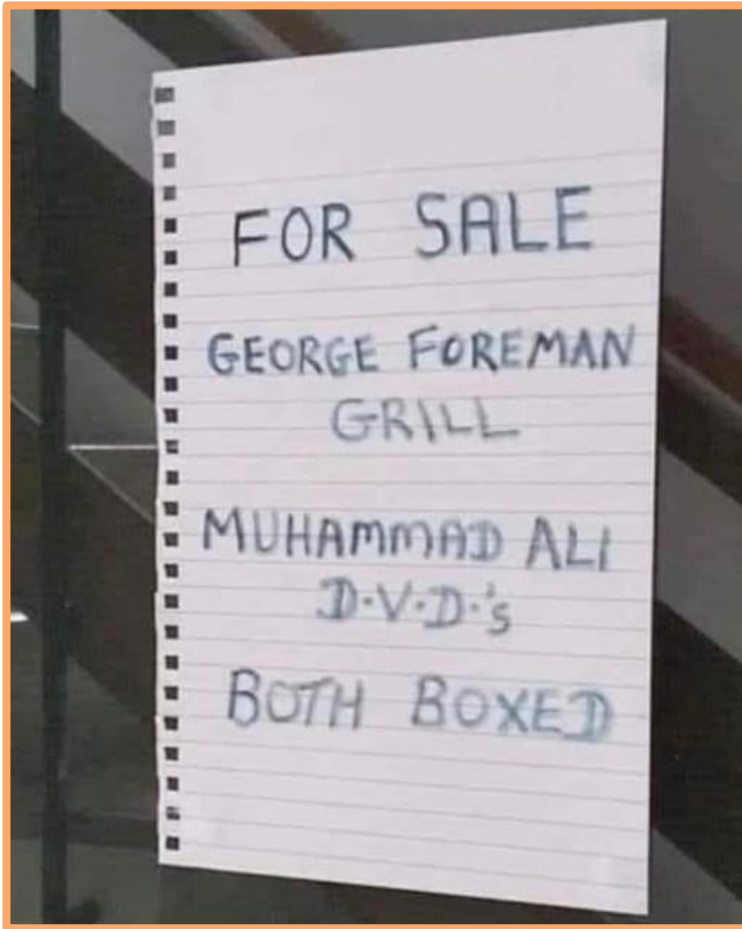 FOR SALE
GEORGE FOREMAN
GRILL
MUHAMMAD ALI
D.V.D.'s
BOTH BOXED